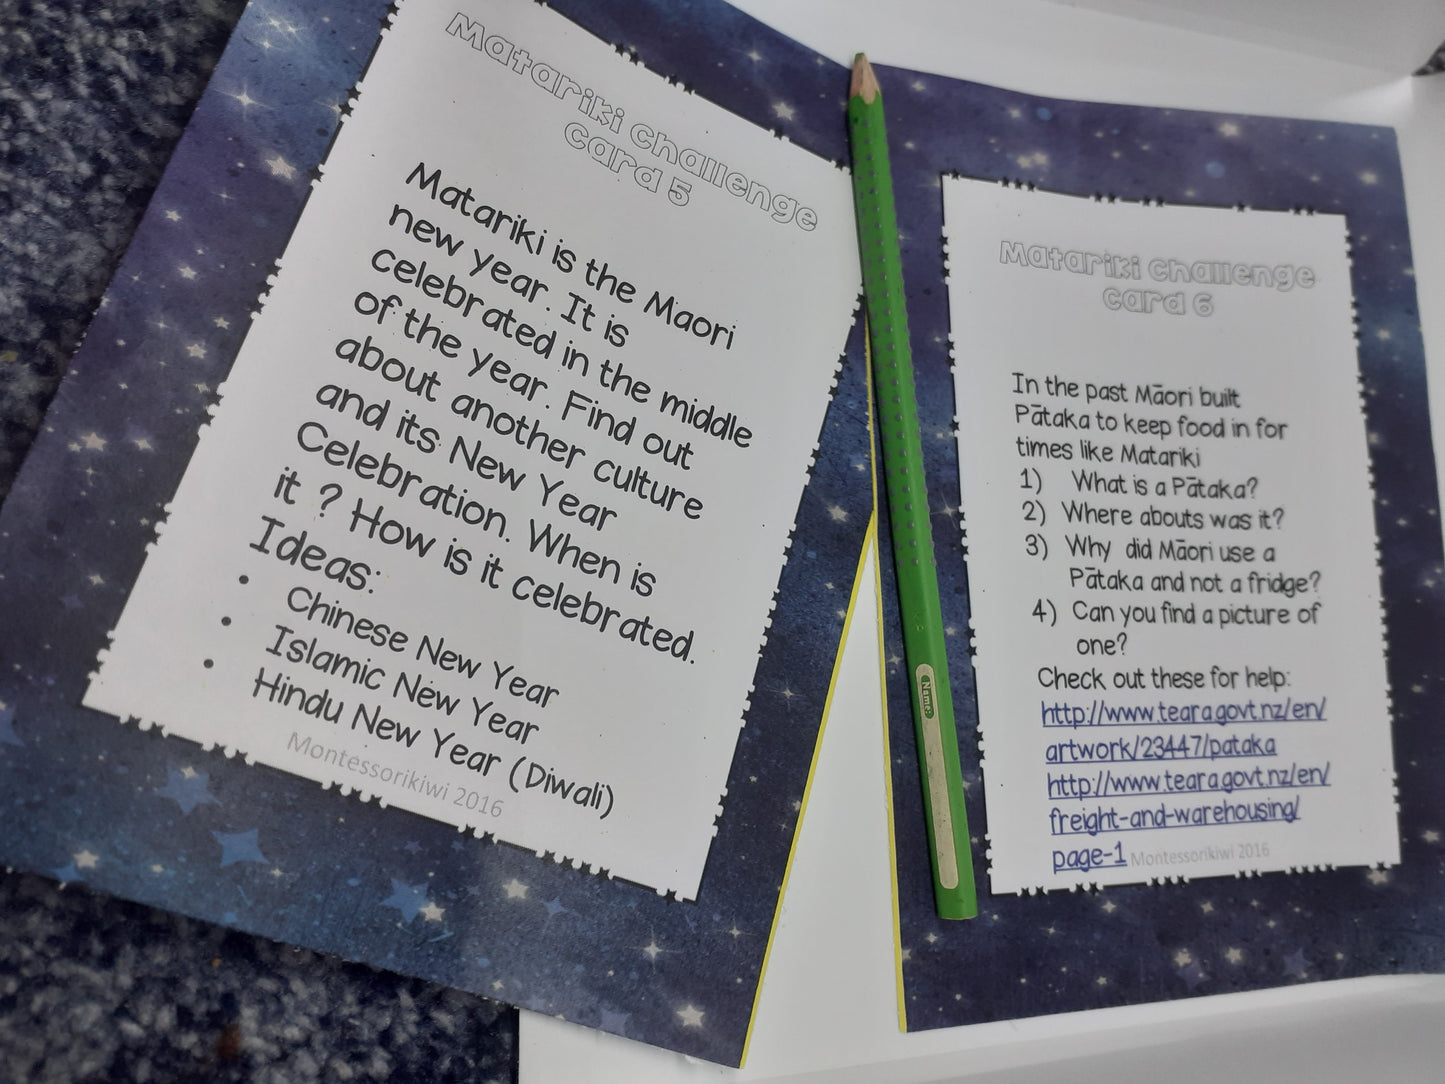 Matariki Challenge
Card 5
Matariki is the Maori
new year. It is
celebrated in the middle
of the year. Find out
about another culture
and its New Year
Celebration. When is
it ? How is it celebrated.
Ideas:
• Chinese New Year
• Islamic New Year
• Hindu New Year (Diwali)
Montessorikiwi 2016
Name:
Matariki Challenge
Card 6
In the past Māori built
Pātaka to keep food in for
times like Matariki
1) What is a Pātaka?
2) Where abouts was it?
3) Why did Māori use a
Pātaka and not a fridge?
4) Can you find a picture of
one?
Check out these for help:
http://www.teara.govt.nz/en/
artwork/23447/pataka
http://www.teara.govt.nz/en/
freight-and-warehousing/
page-1 Montessorikiwi 2016